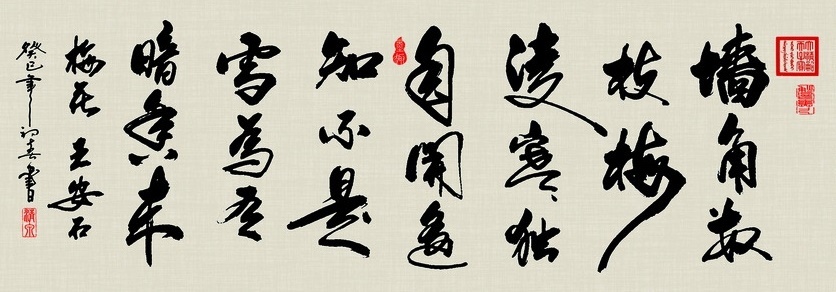 墙角数
枝梅
凌寒独
自開遥
知不是
雪為有
暗香来
梅花 王安石
癸巳年初春書